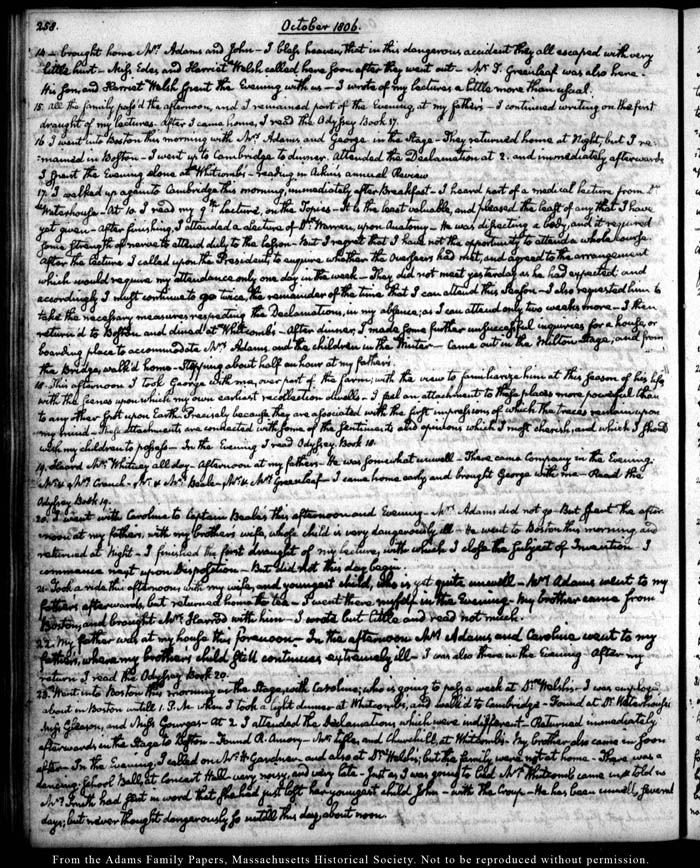 258.
October 1806.
14 — brought home Mrs. Adams and John — I bless heaven, that in this dangerous accident they all escaped with very
little hurt — Miss Edes, and Harriet Welsh called here soon after they went out — Mr. T. Greenleaf was also here.
His son, and Harriet Welsh spent the Evening with us — I wrote of my lectures a little more than usual.
15. All the family pass'd the afternoon, and I remained part of the Evening, at my father's — I continued writing on the first
draught of my lectures. After I came home, I read the Odyssey Book 17.
16 I went into Boston this morning with Mrs. Adams and George in the Stage — They returned home at Night, but I re-
:mained in Boston — I went up to Cambridge to dinner. Attended the Declamation at 2. and immediately afterwards
I spent the Evening alone at Whitcomb's — reading in Aikins annual Review
17. I walked up again to Cambridge this morning, immediately after Breakfast — I heard part of a medical lecture from Dr.
Waterhouse — At 10. I read my 9th. Lecture, on the Topics — It is the least valuable, and pleased the least of any that I have
yet given — After finishing, I attended a lecture of Dr. Warren, upon Anatomy — He was dissecting a body, and it required
some strength of nerves to attend duly to the lesson — But I regret that I have not the opportunity to attend a whole course.
After the lecture I called upon the President to enquire whether the Overseers had met, and agreed to the arrangement
which would require my attendance only one day in the week — They did not meet yesterday as he had expected; and
accordingly I must continue to go twice, the remainder of the time that I can attend this Season — I also requested him to
take the necessary measures respecting the Declamations, in my absence; as I can attend only two weeks more — I then
return'd to Boston and dined at Whitcomb's — After dinner, I made some further unsuccessful inquiries for a house, or
boarding place to accommodate Mrs. Adams, and the children in the Winter — Came out in the Milton Stage; and from
the Bridge, walk'd home — Stopping about half an hour at my father's
18. This afternoon I took George with me, over part of the farm; with the view to familiarize him at this season of his life,
with the scenes upon which my own earliest recollection dwells — I feel an attachment to these places more powerful than
to any other spot upon Earth. Precisely because they are associated with the first impressions of which the traces remain upon
my mind — These attachments are connected with some of the sentiments and opinions which I most cherish, and which I should
wish my children to possess — In the Evening I read Odyssey. Book 18.
19. Heard Mr. Whitney all day — Afternoon at my father's — He was somewhat unwell — There came Company in the Evening.
Mr. & Mrs. Cranch — Mr. & Mrs. Beale, Mr. & Mrs. Greenleaf — I came home early and brought George with me — Read the
Odyssey Book 19.
20. I went with Caroline to Captain Beale's this afternoon and Evening — Mrs. Adams did not go — But spent the after-
noon at my father's, with my brother's wife, whose child is very dangerously ill — He went to Boston this morning, and
returned at Night — I finished the first draught of my lecture, with which I close the subject of Invention — I
commence next upon Disposition — But did not this day begin.
21. Took a ride this afternoon, with my wife, and youngest child, who is yet quite unwell — Mrs. Adams went to my
father's afterwards, but returned home to tea — I went there myself in the Evening — My brother came from
Boston, and brought Mrs. Harrod with him — I wrote but little and read not much.
22. My father was at my house this forenoon — In the afternoon Mrs. Adams and Caroline went to my
father's, where my brother's child still continues extremely ill — I was also there in the Evening — After my
return I read the Odyssey Book 20.
23. Went into Boston this morning in the Stage, with Caroline; who is going to pass a week at Dr. Welsh's — I was employed
about in Boston untill 1. P.M. when I took a light dinner at Whitcomb's, and walk'd to Cambridge — Found at Dr. Waterhouse's
Miss Gleason, and Miss Gourgas — At 2. I attended the Declamations, which were indifferent — Returned immediately
afterwards in the Stage to Boston — Found R. Amory — Mr. Lyle, and Churchill, at Whitcomb's. My brother also came in soon
after — In the Evening, I called on Mr. H. Gardner — and also at Dr. Welsh's; but the family were not at home — There was a
dancing School Ball, at Concert Hall — very noisy, and very late — Just as I was going to bed Mr. Whitcomb came in & told us
Mrs. Smith had sent in word that she had just left her youngest child John — with the Croup — He has been unwell, several
days; but never thought dangerously so untill this day, about noon.
From the Adams Family Papers, Massachusetts Historical Society. Not to be reproduced without permission.